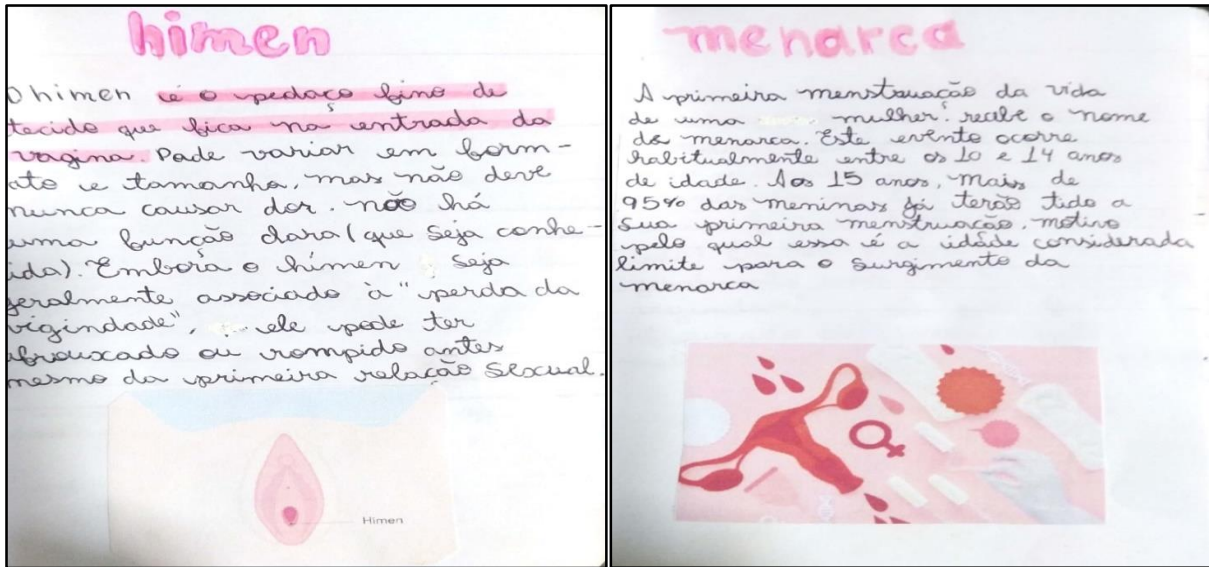 himen
O himen é o pedaço fino de
tecido que fica na entrada da
vagina. Pode variar em form-
ato e tamanho, mas não deve
nunca causar dor. não há
uma função clara (que seja conhe-
ida). Embora o hímen seja
geralmente associado à "perda da
vigindade", ele pode ter
afrouxado ou rompido antes
mesmo da primeira relação sexual.
Hímen
menarca
A primeira menstruação da vida
de uma mulher. recebe o nome
de menarca. Este evento ocorre
habitualmente entre os 10 e 14 anos
de idade. Aos 15 anos, mais de
95% das meninas já terão tido a
sua primeira menstruação, motivo
pelo qual essa é a idade considerada
limite para o surgimento da
menarca